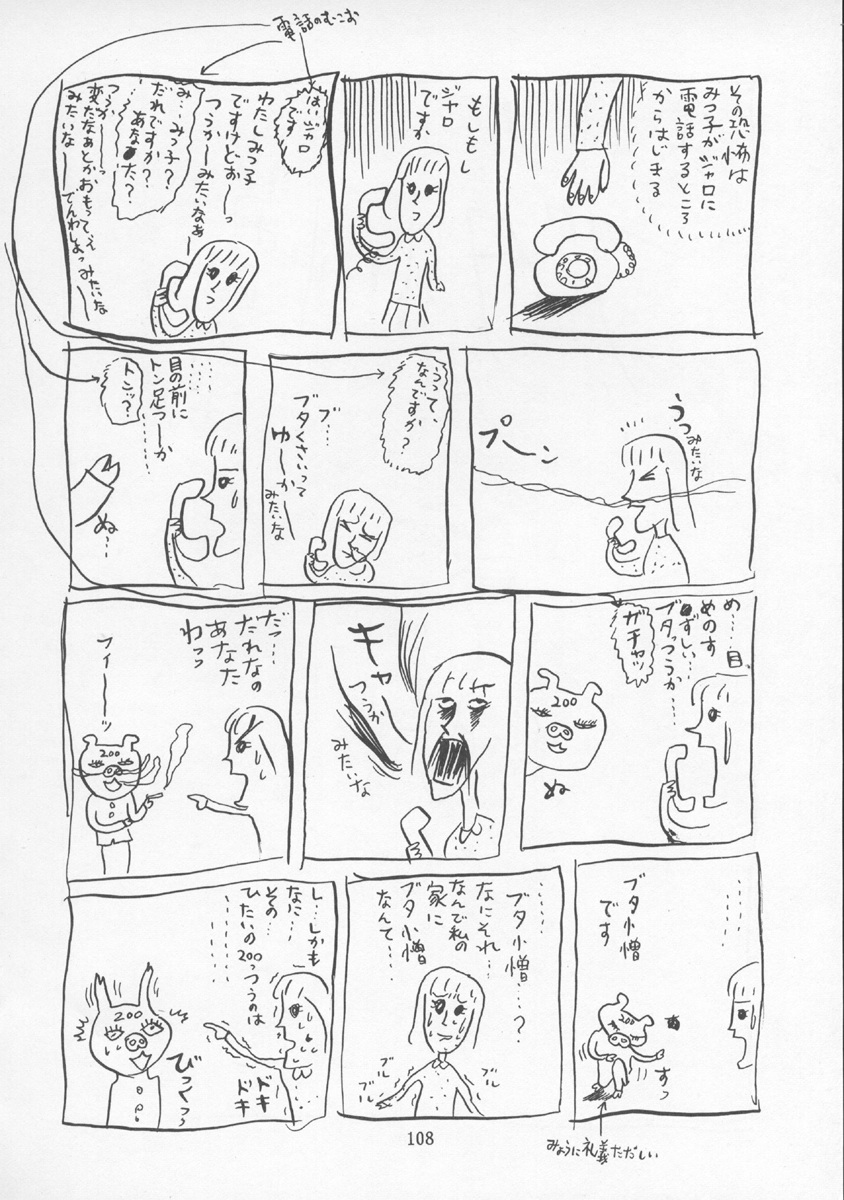 電話のむこお
その恐怖は
みつ子がジャロに
電話するところ
からはじまる
もしもし
ジャロ
ですか
はいジャロ
です
わたしみつ子
ですけどぉ〜っ
つうか〜みたいなぁ〜
み…みつ子?
だれですか?
…あなた?
つうか〜っ
変だなぁとかおもってぇ
みたいな〜でんわしよっみたいな
うっ
みたいな
プ〜ン
うって、
なんですか?
ブ…
ブタくさいって
ゆ〜か
みたいな
……
目の前に
トン足つ〜か
……
トンッ?
ぬ…
め…目、
めのす
ずしい…
ブタっつうか…
ガチャッ
200
ぬ
キャ
つうか
みたいな
だっ…
だれなの
あなた
わっっ
フィ〜ッ
200
……
ブタ小憎
です
200
すっ
みょうに礼義ただしい
……
ブタ小憎…?
なにそれ…
なんで私の
家に
ブタ小憎
なんて…
ブル
ブル
ブル
ブル
し…しかも
なに…
その…
ひたいの200っつうのは
……
ドキ
ドキ
200
びくっっ
108